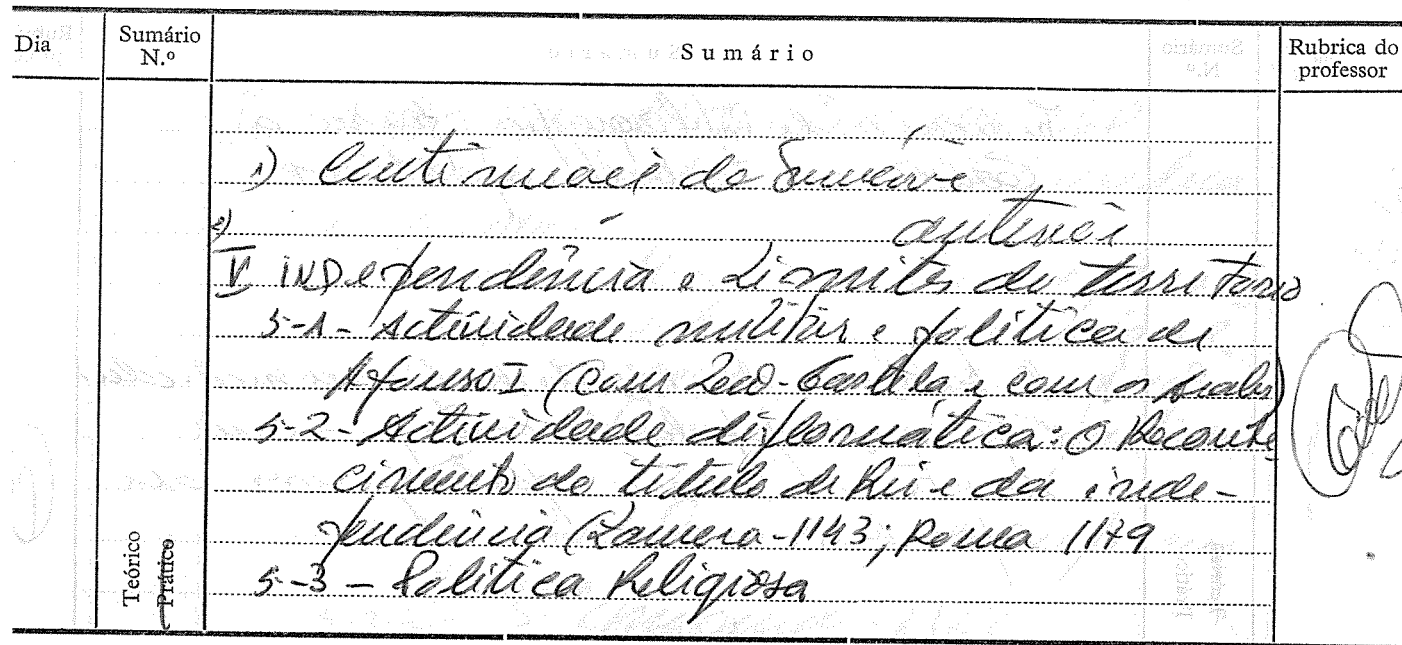 Dia
Sumário N.º
Sumário
Rubrica do professor
1) Continuação do Sumário
anterior
2)
V Independência e Limites do território
5-1- Actividade militar e política de
Afonso I (com Leão-Castela e com os Árabes)
5-2- Actividade diplomática: O Reconhe
cimento do título de Rei e da inde-
pendência (Zamora-1143; Roma 1179
5-3- Política Religiosa
Teórico
Prático